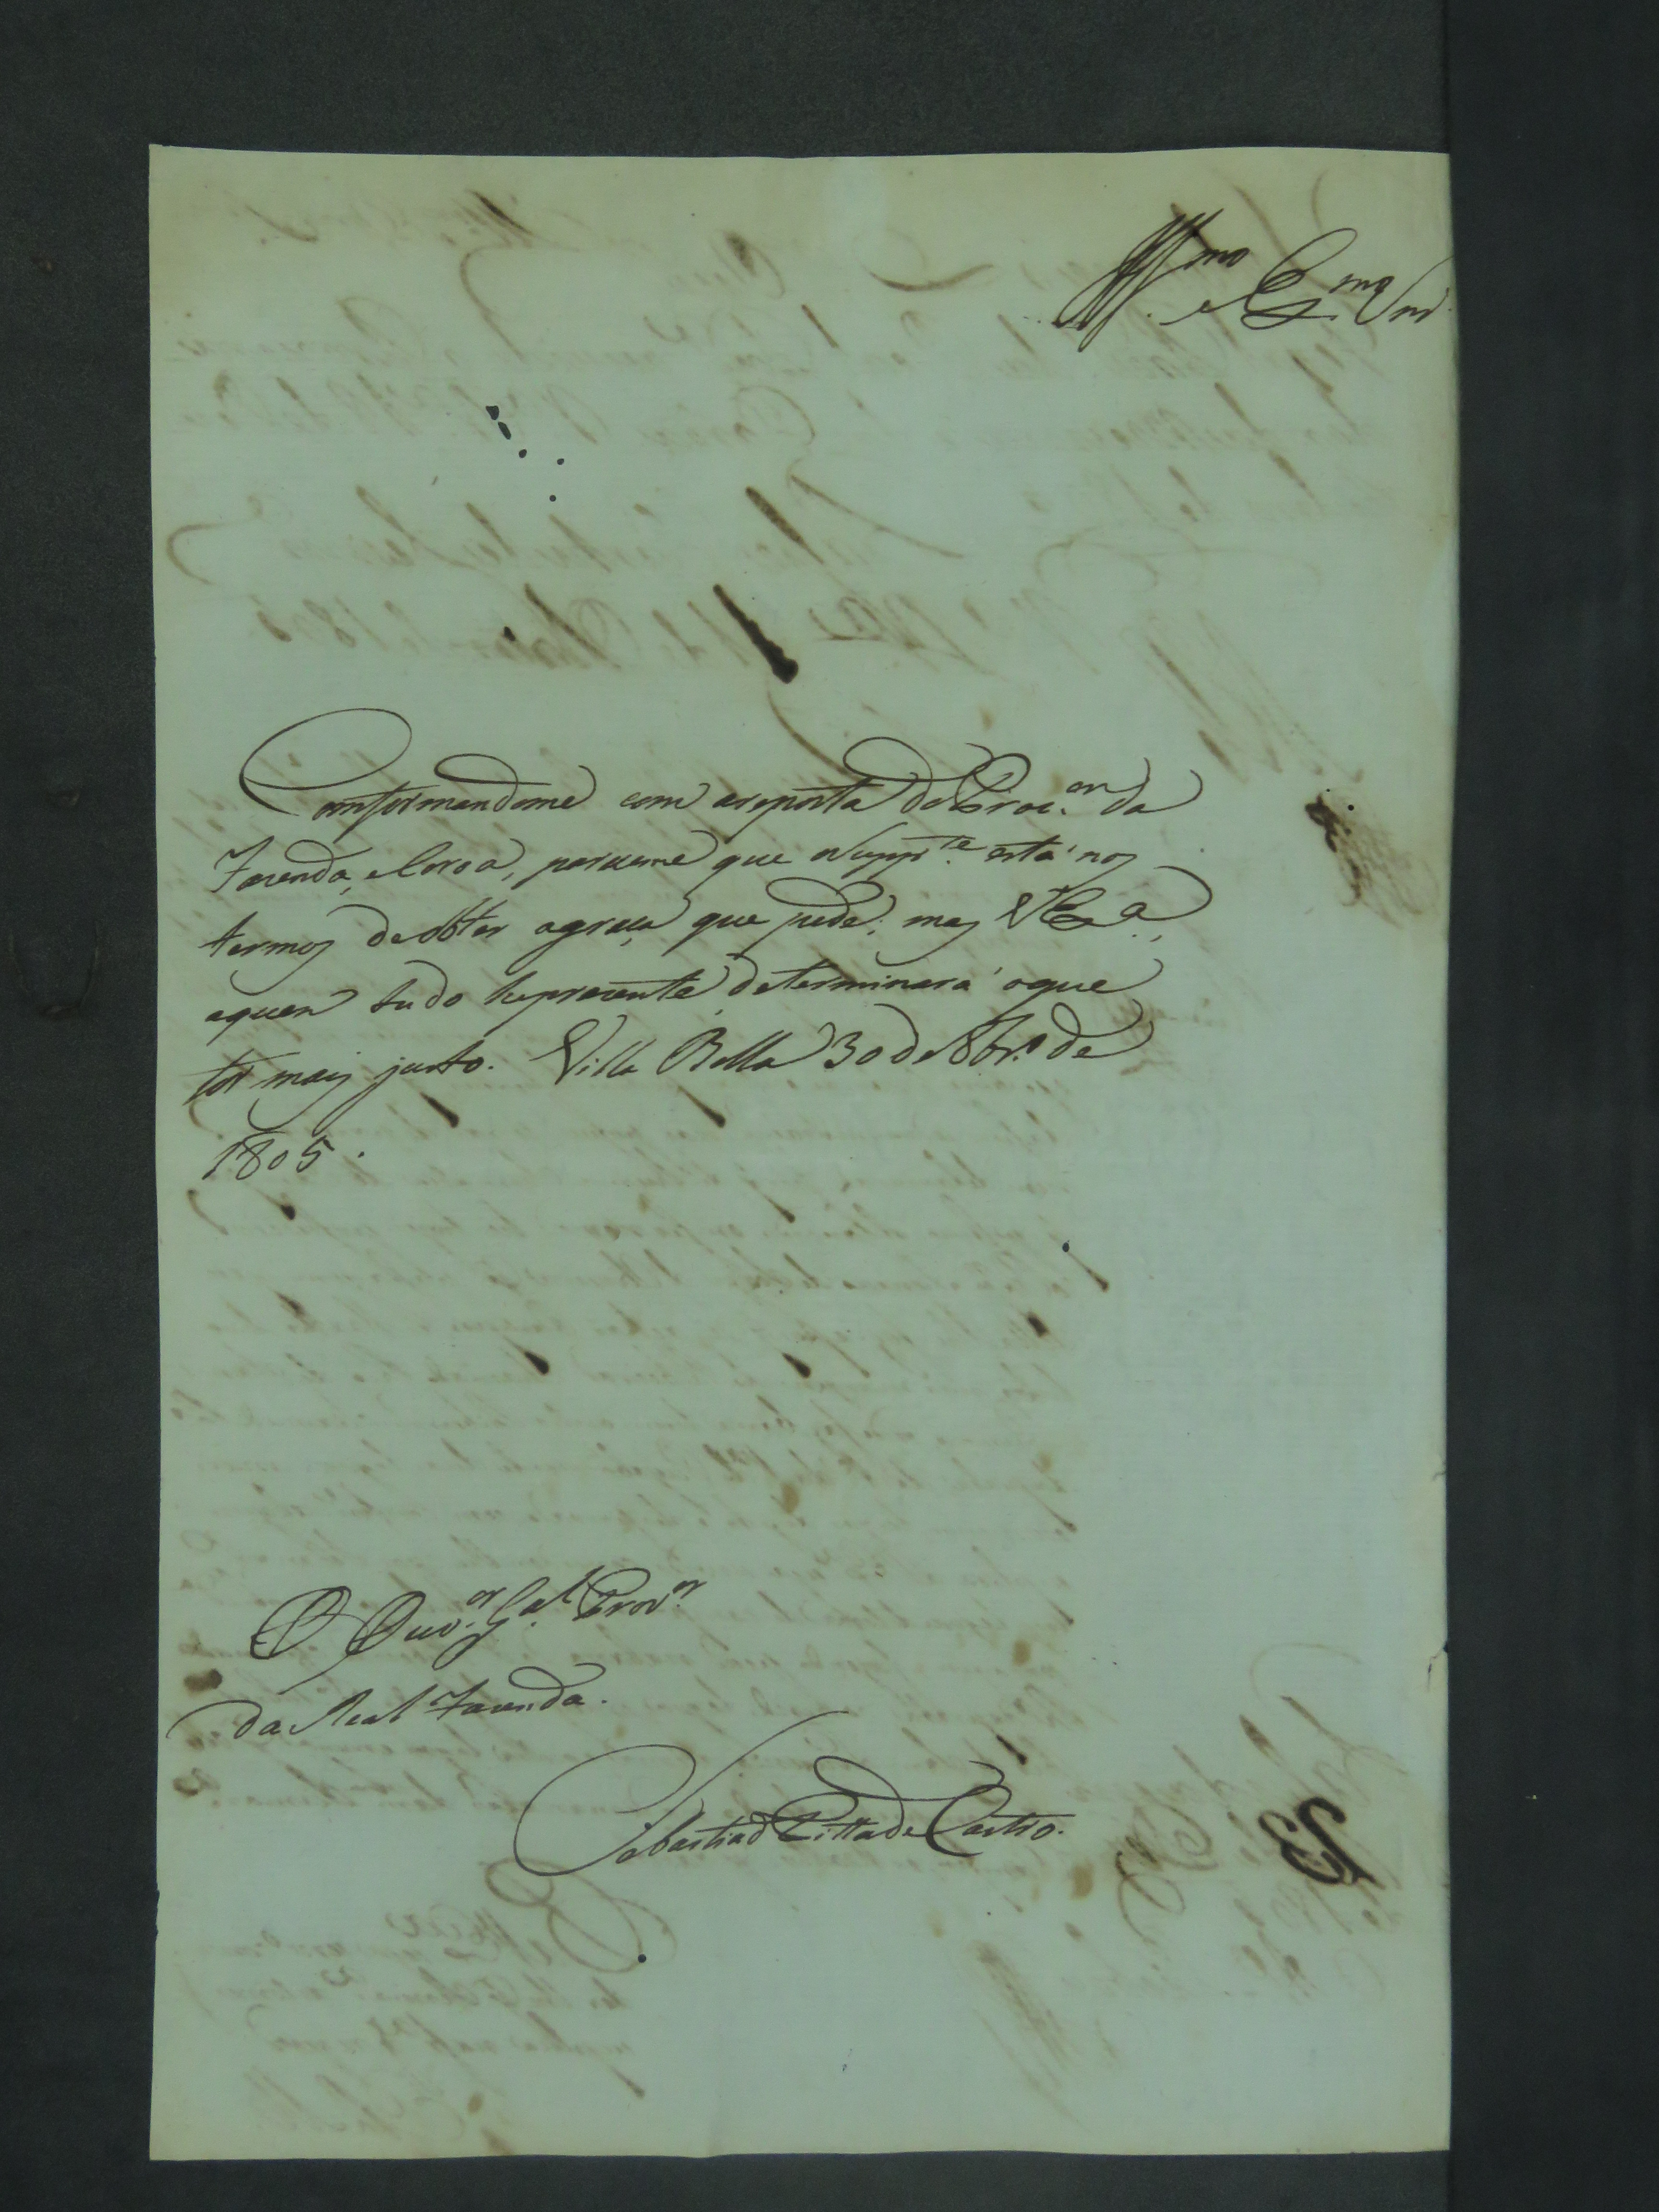 Ill.mo e Ex.mo Snr.
Conformandome com areposta do Proc.or da
Fazenda, e Coroa, pareceme que o Supp.te está nos
termos de obter agraça que pede; mas V Ex.a,
aquem tudo he prezente, determinará oque
for mais justo. Villa Bella 30 de 8br.o de
1805.
O Ouv.or G.al Prov.or
da Real Fazenda.
Sebastiaõ Pitta de Castro.